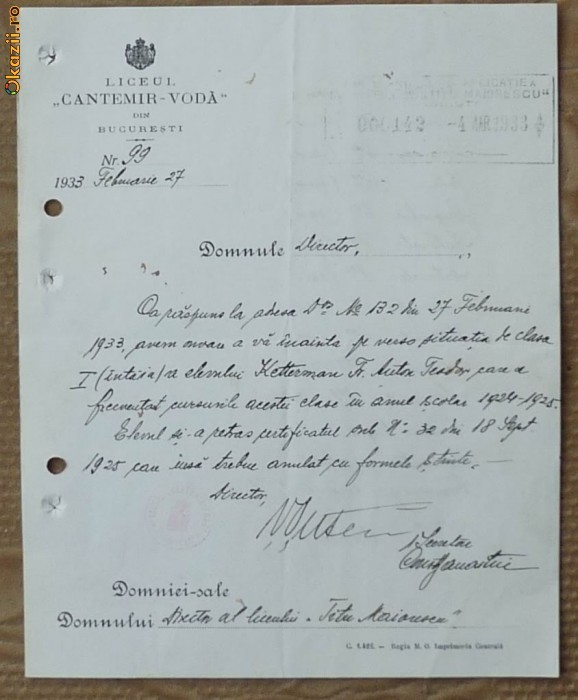 Okazii.ro
LICEUL
„CANTEMIR-VODĂ“
DIN
BUCUREȘTI
Nr. 99
1933 Februarie 27
APLICAȚIE A
MAIORESCU"
000142 - 4 MAR 1933
Domnule Director,
Ca răspuns la adresa Dvs No 132 din 27 Februarie
1933, avem onoare a vă înainta pe verso situația de clasa
I (întâia) a elevului Ketterman Fr. Anton Teodor care a
frecventat cursurile acestei clase în anul școlar 1924-1925.
Elevul și-a retras certificatul sub No 32 din 18 Sept
1925 care însă trebue anulat cu formele știute.
Director,
Secretar
Domniei-sale
Domnului Director al liceului „Titu Maiorescu"
C. 1.423. — Regia M. O. Imprimeria Centrală